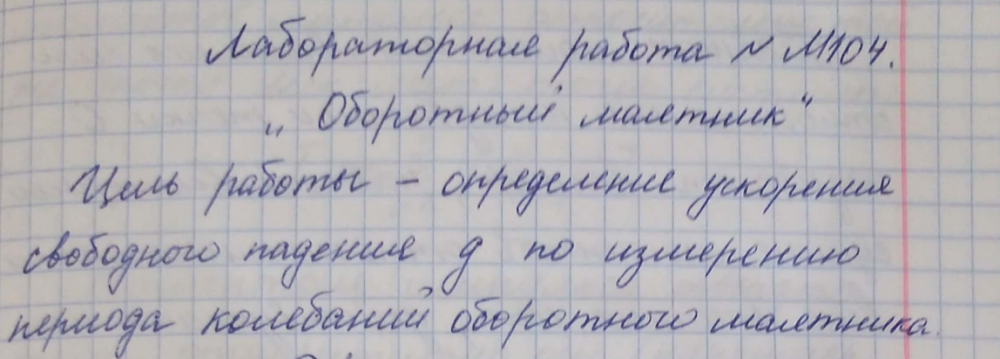 Лабораторная работа № М104.
„Оборотный маятник"
Цель работы – определение ускорения
свободного падения g по измерению
периода колебаний оборотного маятника.